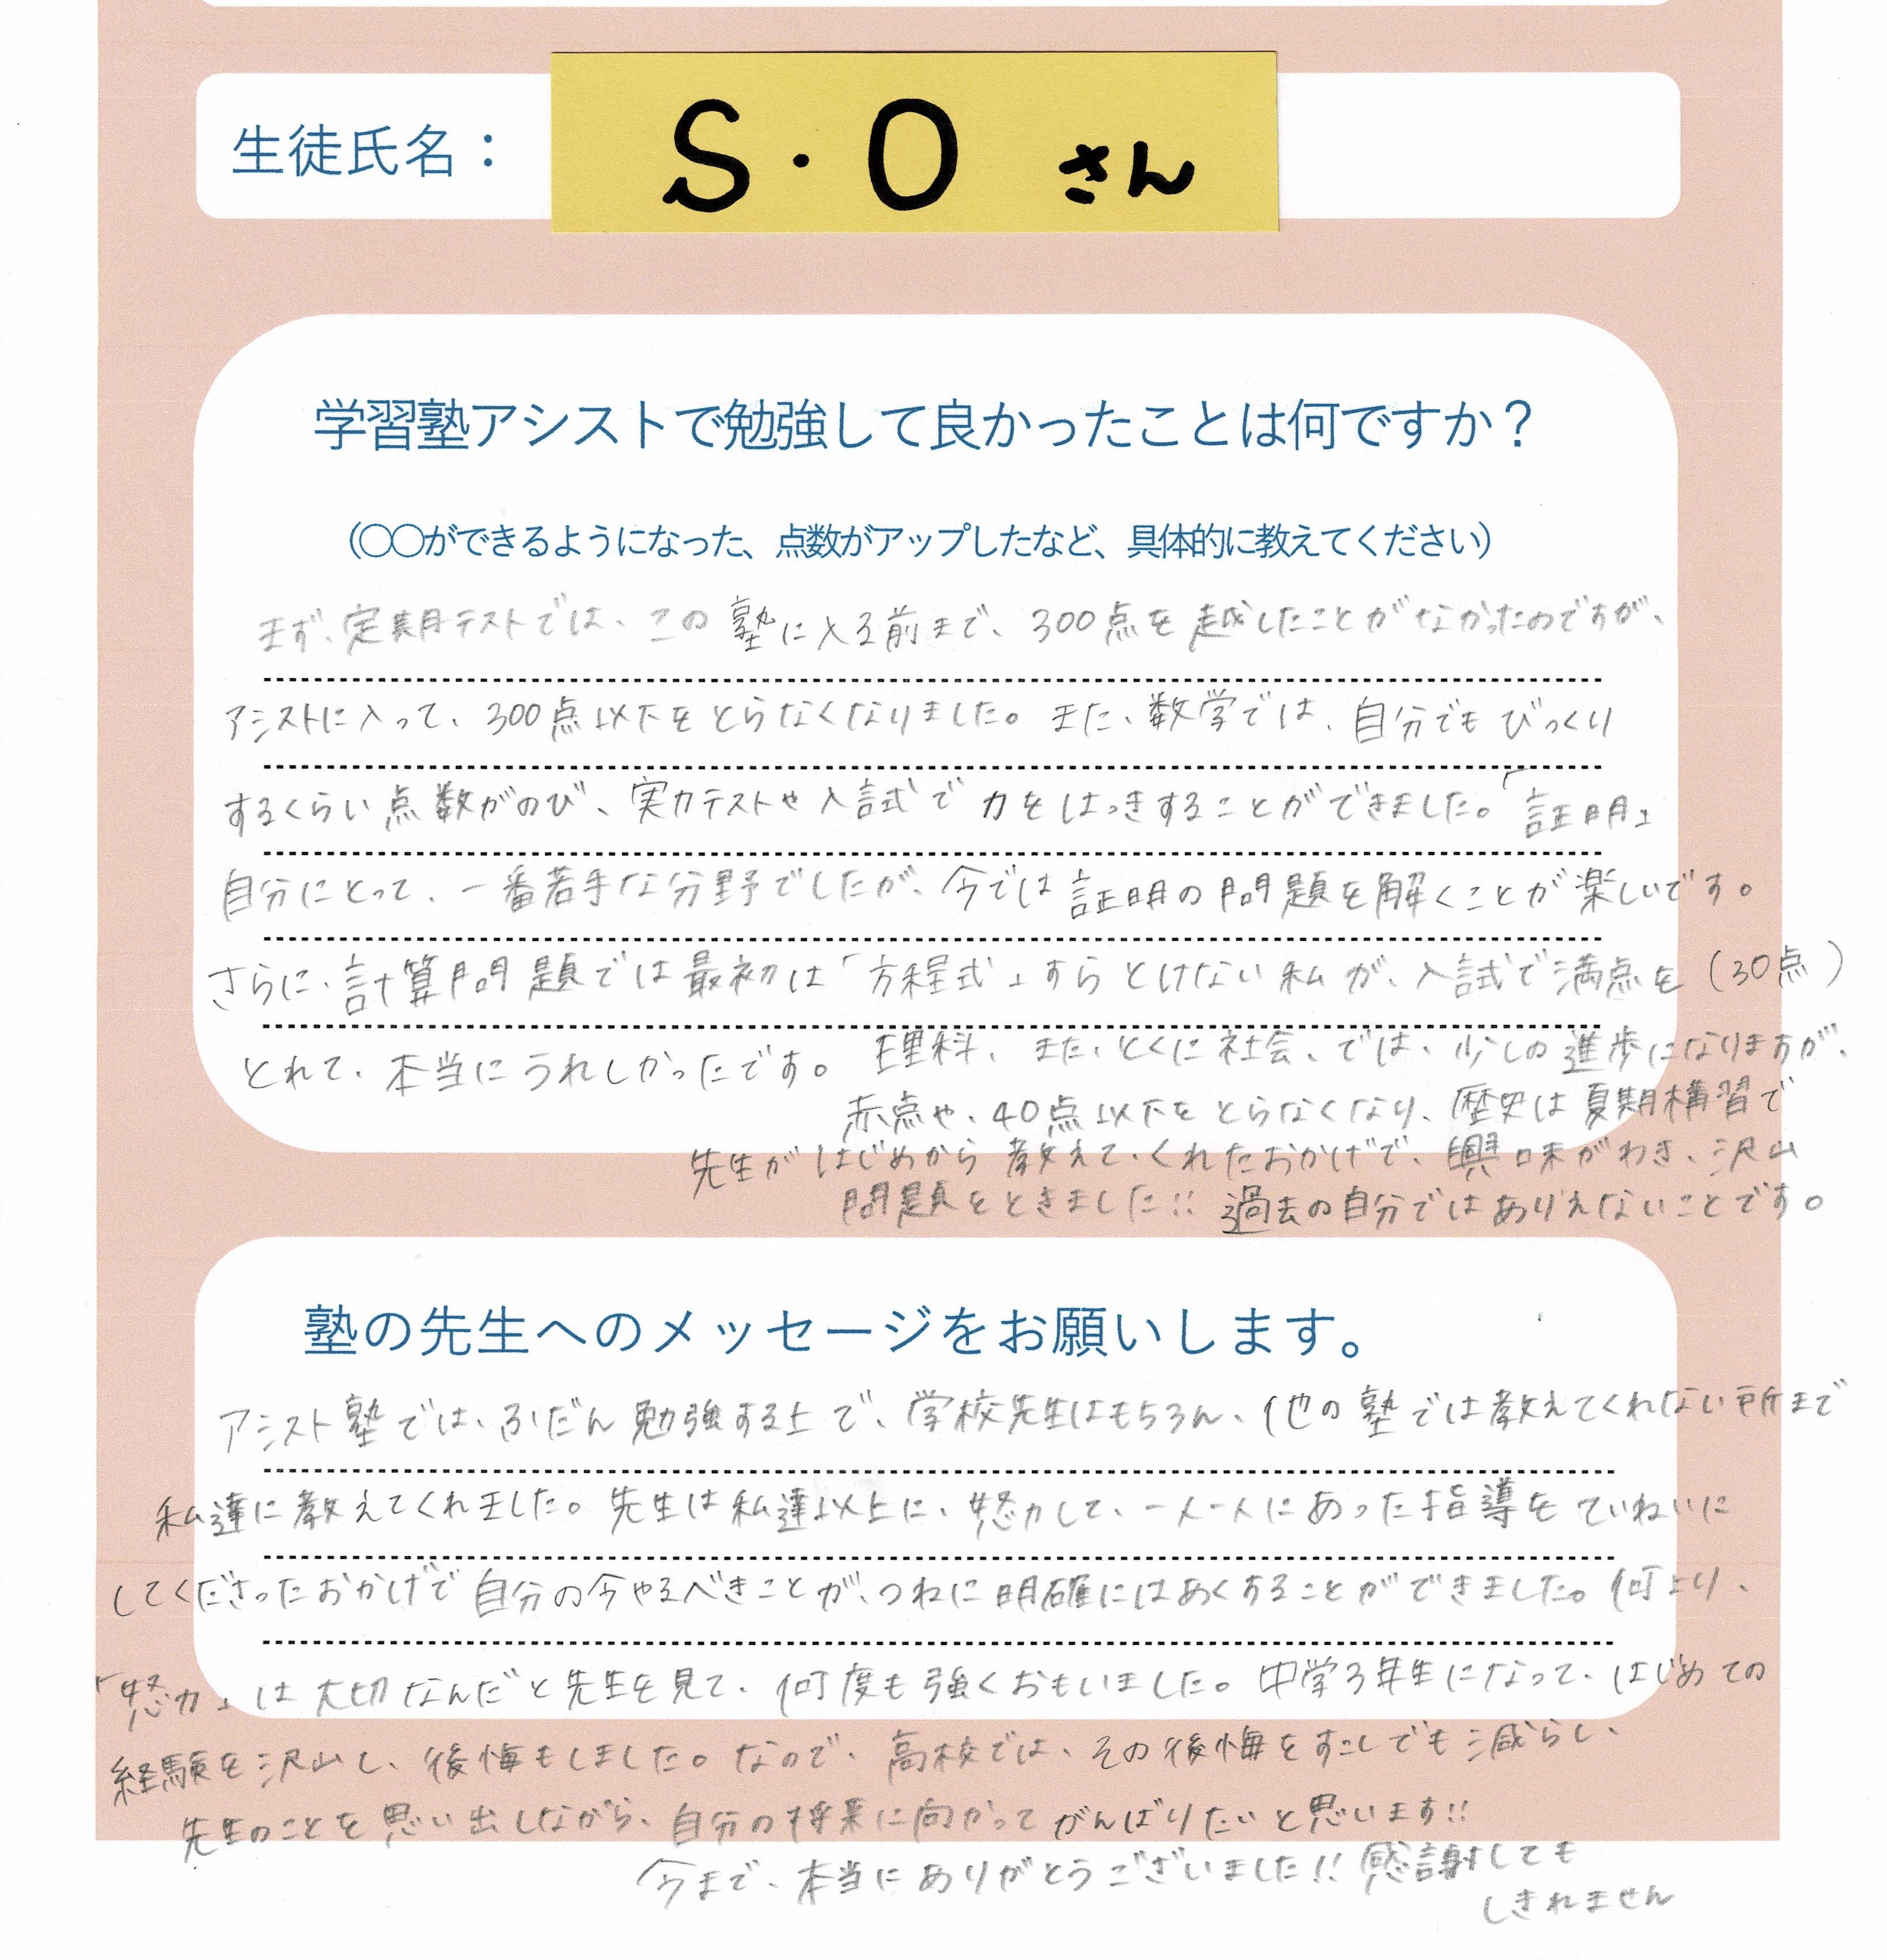 生徒氏名：
S・O さん
学習塾アシストで勉強して良かったことは何ですか？
（〇〇ができるようになった、点数がアップしたなど、具体的に教えてください）
まず、定期テストでは、この塾に入る前まで、300点を越したことがなかったのですが、
アシストに入って、300点以下をとらなくなりました。また、数学では、自分でもびっくり
するくらい点数がのび、実力テストや入試で力をはっきすることができました。「証明」
自分にとって、一番苦手な分野でしたが、今では証明の問題を解くことが楽しいです。
さらに、計算問題では最初は「方程式」すらとけない私が、入試で満点を（30点）
とれて、本当にうれしかったです。理科、また、とくに社会、では、少しの進歩になりますが、
赤点や、40点以下をとらなくなり、歴史は夏期構習で
先生がはじめから教えて、くれたおかげで、興味がわき、沢山
問題をときました!! 過去の自分ではありえないことです。
塾の先生へのメッセージをお願いします。
アシスト塾では、ふだん勉強する上で、学校先生はもちろん、他の塾では教えてくれない所まで
私達に教えてくれました。先生は私達以上に、努力して、一人一人にあった指導をていねいに
してくださったおかげで自分の今やるべきことが、つねに明確にはあくすることができました。何より、
「努力」は大切なんだと先生を見て、何度も強くおもいました。中学3年生になって、はじめての
経験を沢山し、後悔もしました。なので、高校では、その後悔をすこしでも減らし、
先生のことを思い出しながら、自分の将来に向かってがんばりたいと思います!!
今まで、本当にありがとうございました!! 感謝しても
しきれません